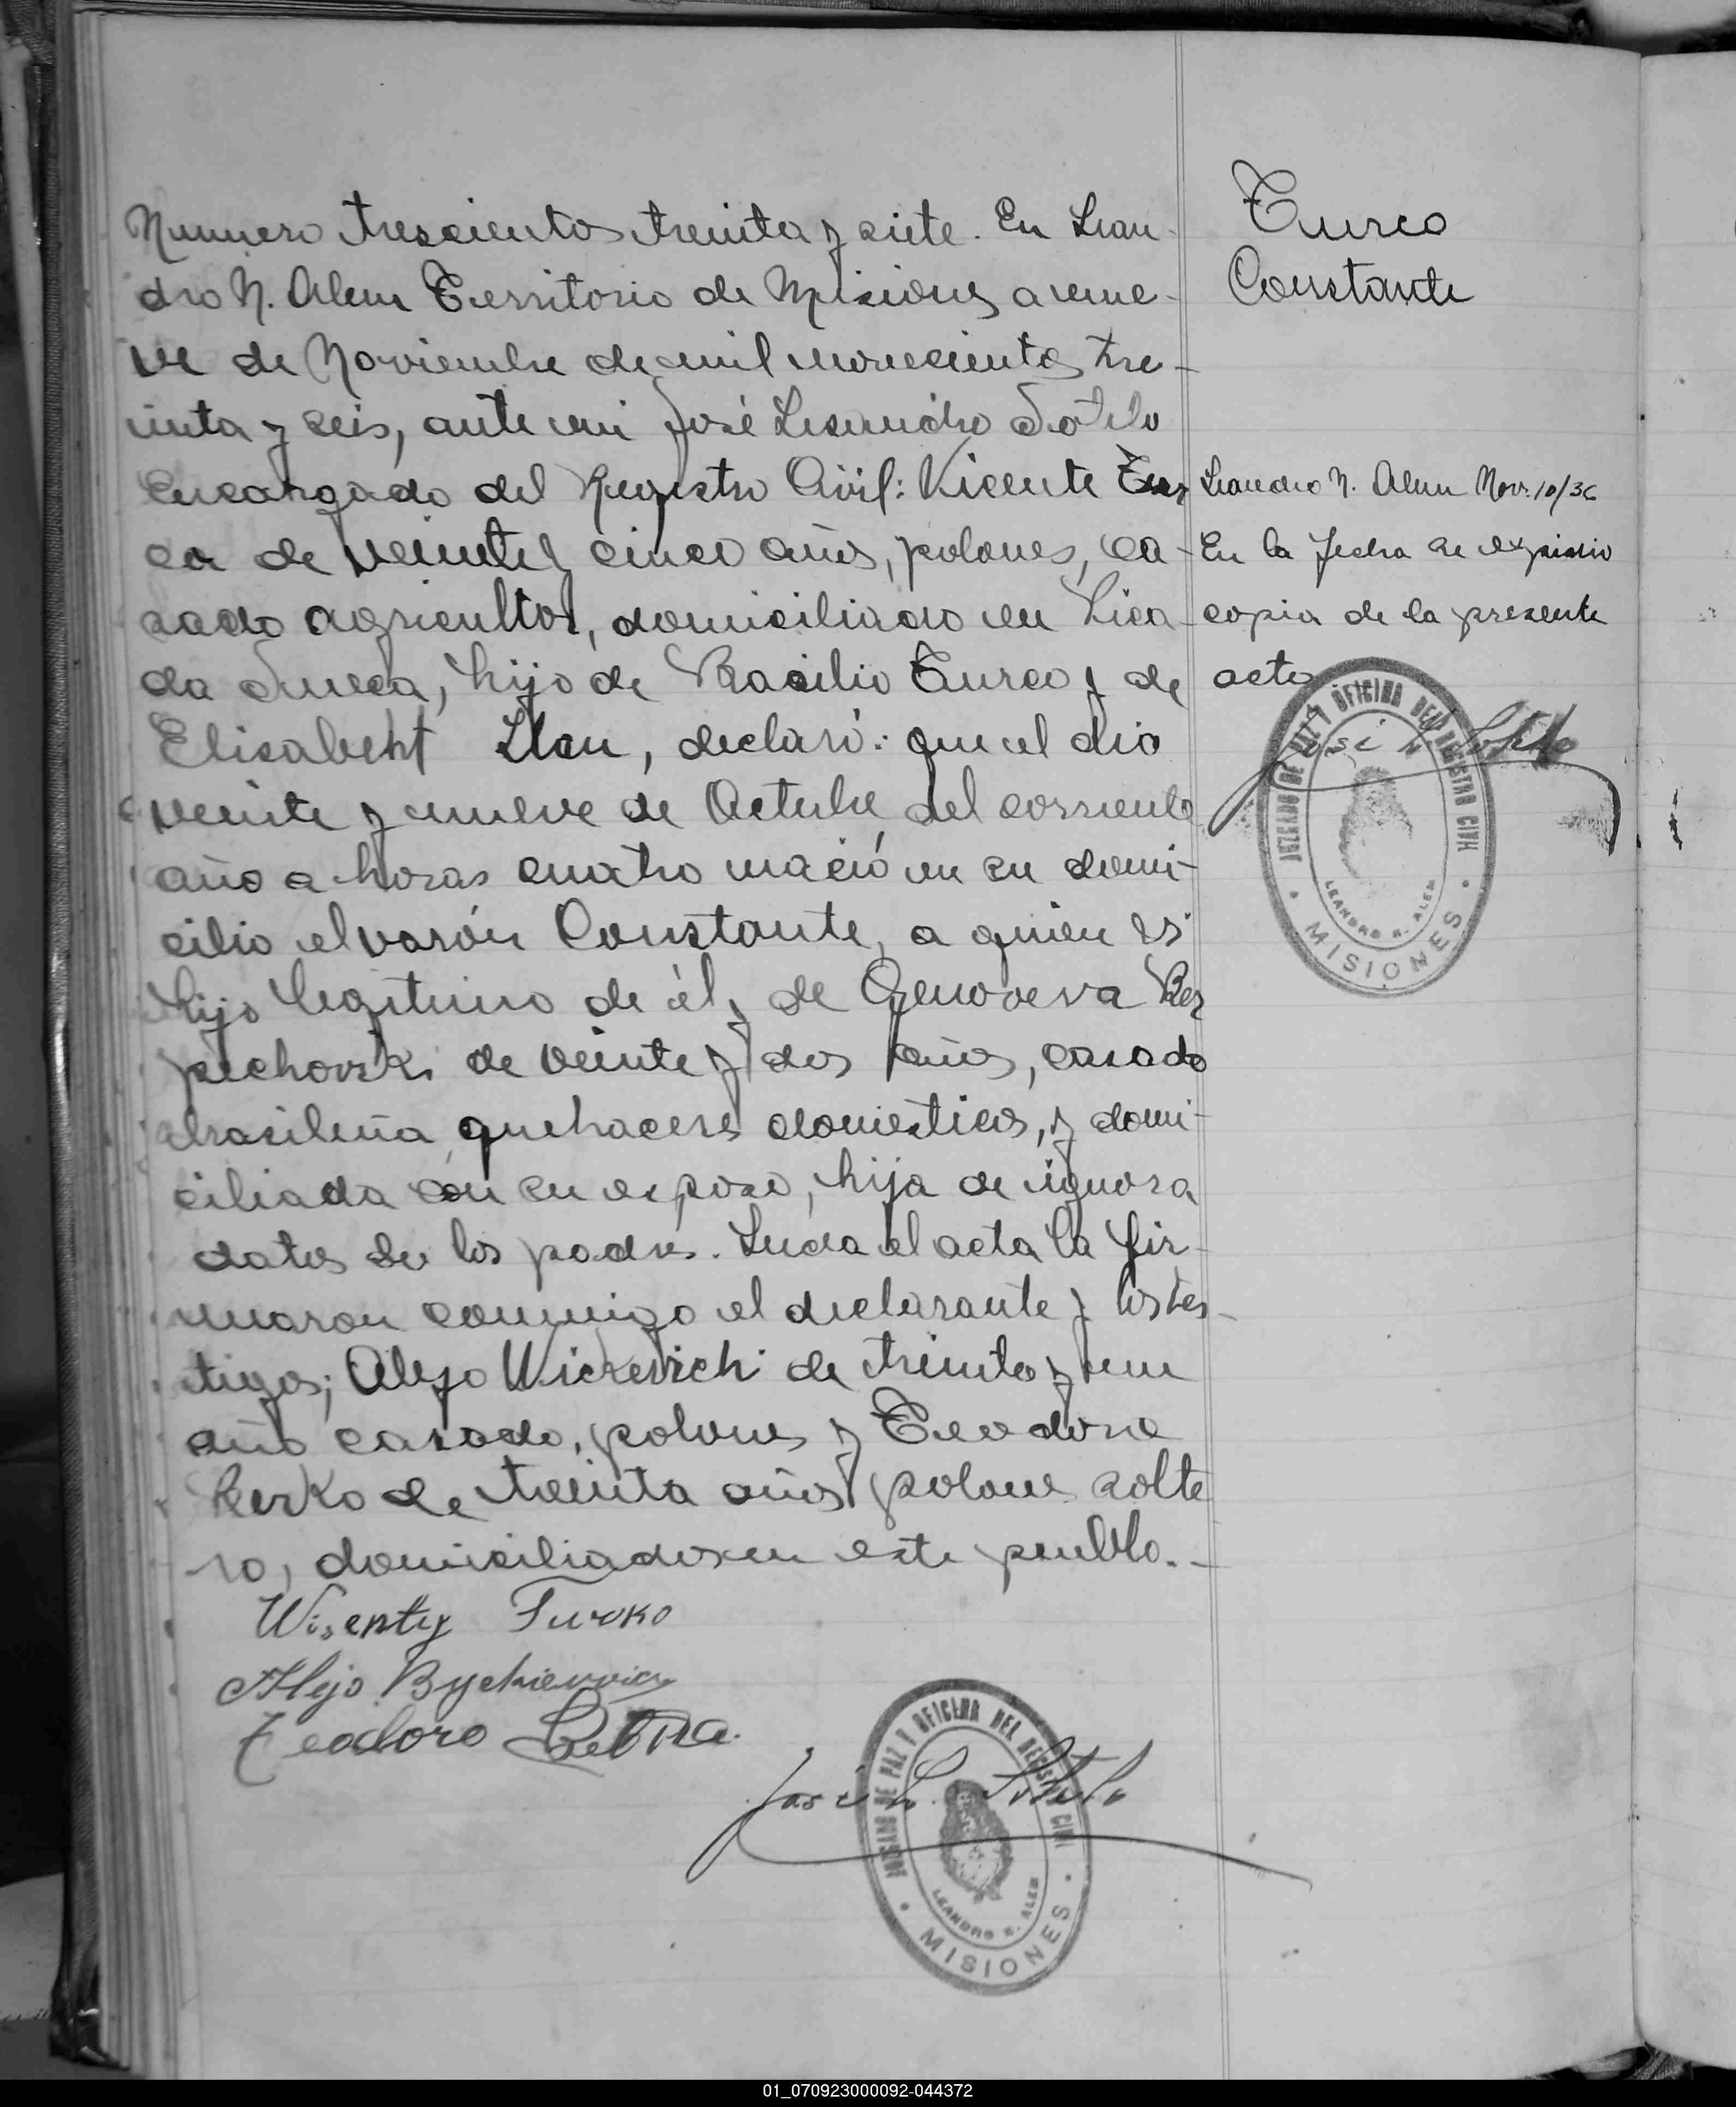 Numero trescientos treinta y siete. En Lean-
dro N. Alem Territorio de Misiones a nue-
ve de Noviembre de mil novecientos tre-
inta y seis, ante mi José Lisandro Sotelo
Encargado del Registro Civil: Vicente Tur
co de veinte y cinco años, polones, ca-
sado agricultor, domiciliado en Pica-
da Sueca, hijo de Basilio Turco y de
Elisabeht, declaró: que el dia
veinte y nueve de Octubre del corriente
año a horas cuatro nació en su domi-
cilio el varón Constante, a quien es
hijo legitimo de él y de Genoveva
pechovski de veinte y dos años, casado
brasileña quehaceres domesticos, y domi-
ciliada con su esposo, hija de ignora
datos de los padres. Leida el acta la fir-
maron conmigo el declarante y los tes-
tigos; Alejo Wickevich de treinta y un
año casado, polones y Teodoro
Kerko de treinta años polones solte
ro, domiciliados en este pueblo.-
Wisenty Turko
Alejo Bychiewicz
Teodoro
José L. Sotelo
JUZGADO DE PAZ Y OFICINA DEL REGISTRO CIVIL
LEANDRO N. ALEM
MISIONES
Turco
Constante
Leandro N. Alem Nov. 10/36
En la fecha se expidio
copia de la presente
acta
José L Sotelo
JUZGADO DE PAZ Y OFICINA DEL REGISTRO CIVIL
LEANDRO N. ALEM
MISIONES
01_070923000092-044372